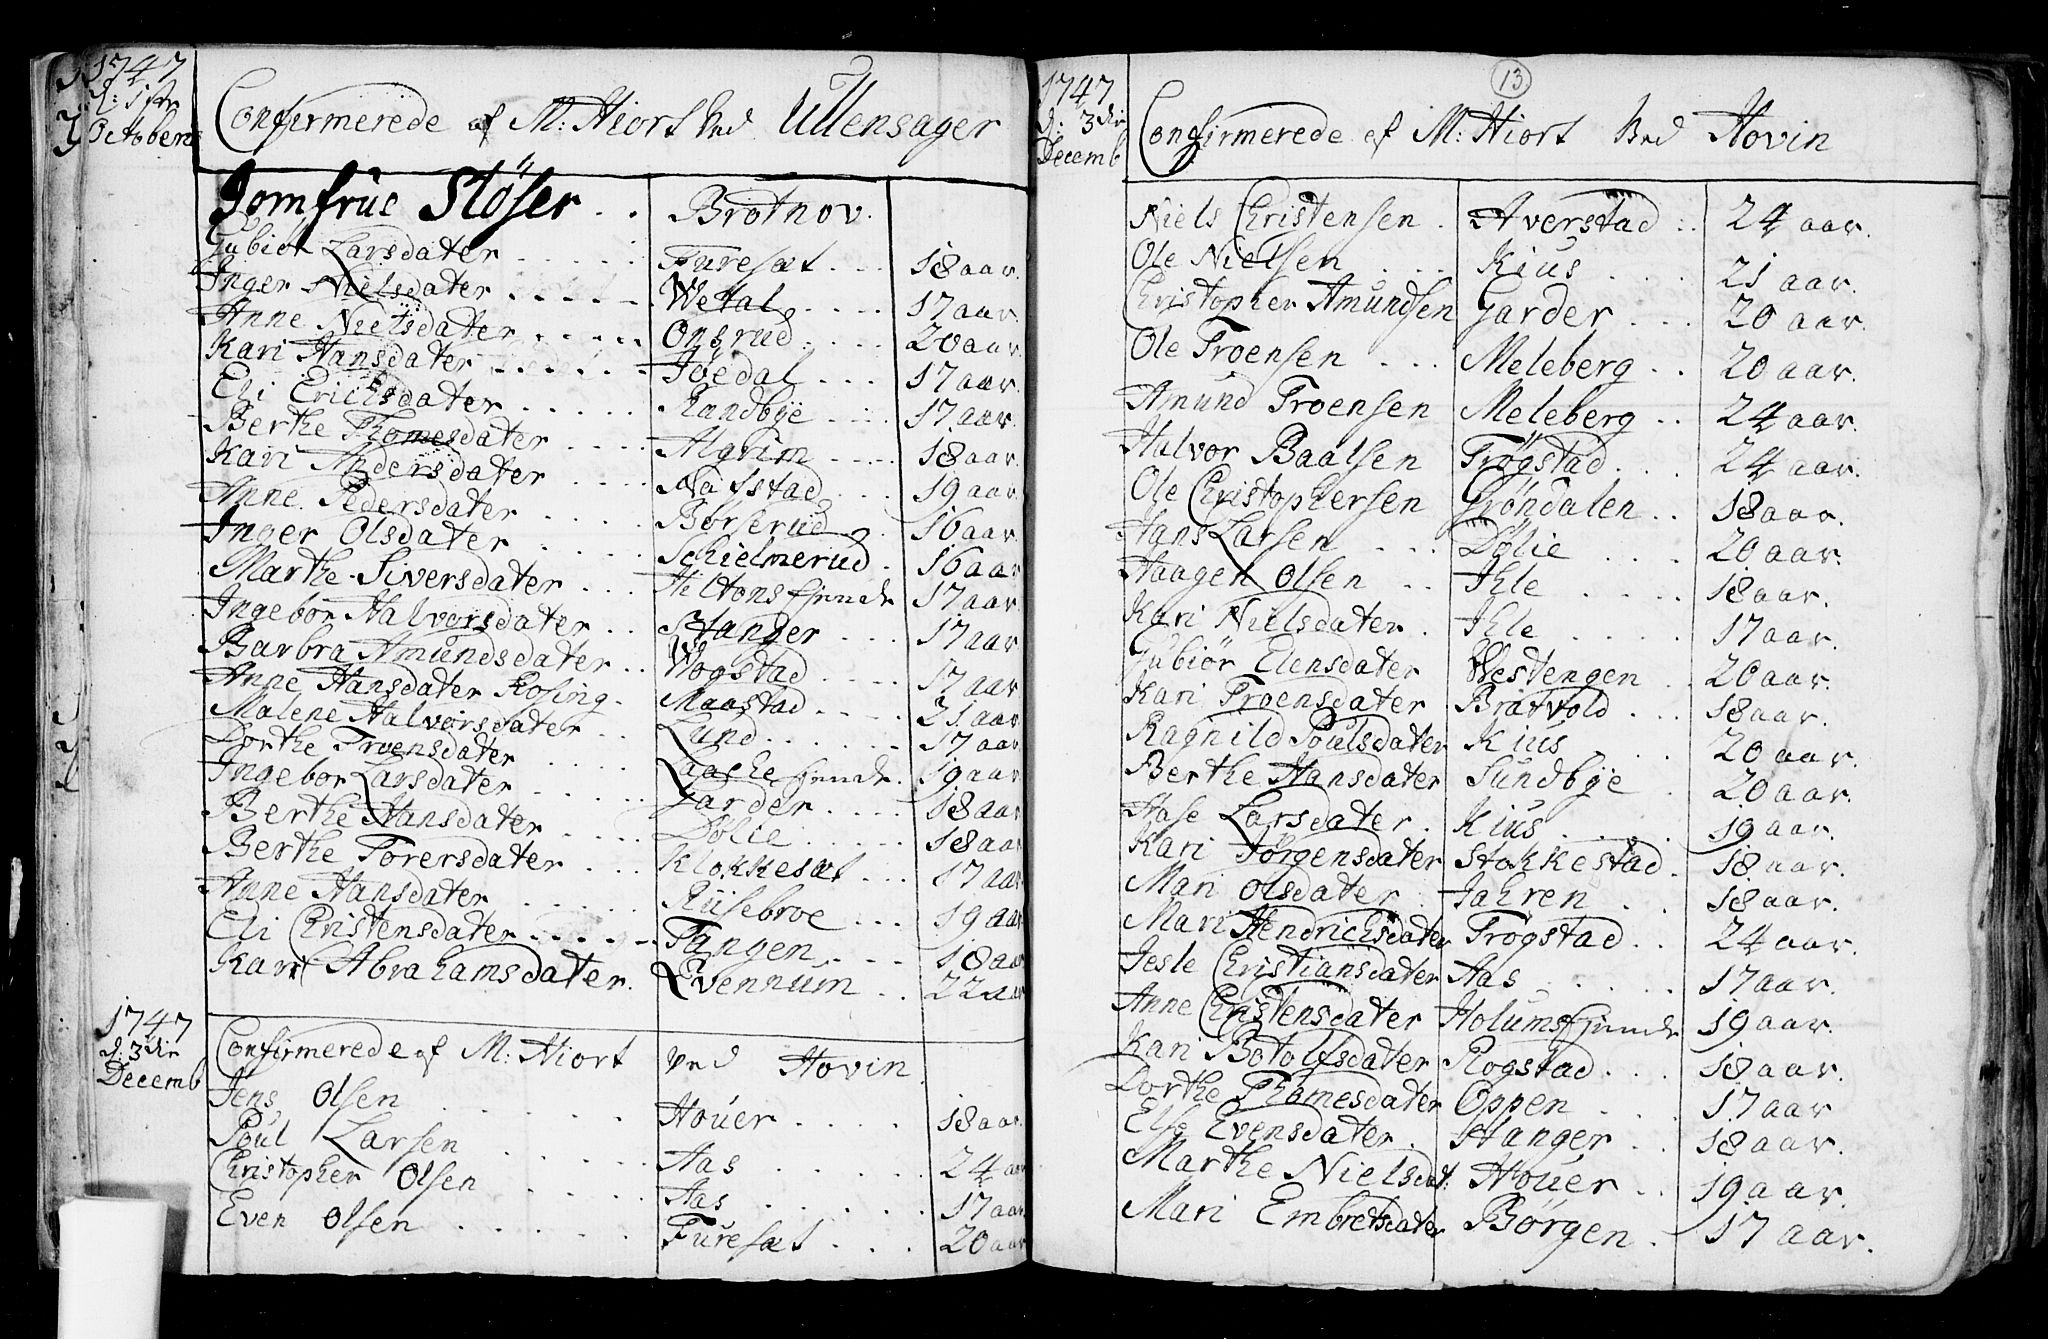 1747
d: 1ste
Octobens
Confirmerede af M: Hiort ved Ullensager
Jomfrue Stöser . . Brotnov.
Gubiör Larsdater . . . . . Furesæt . . . 18 aar.
Inger Nielsdater . . . . . Wetal . . . . 17 aar.
Anne Nielsdater . . . . . Onsrud . . . 20 aar.
Kari Hansdater . . . . . Jöedal . . . 17 aar.
Eli Erichsdater . . . . . Randbÿe . . . 17 aar.
Berthe Thomesdater . . . . Algrim . . . . 18 aar.
Kari Andersdater . . . . Nafstad . . . 19 aar.
Anne Pedersdater . . . . Börserud . . . 16 aar.
Inger Olsdater . . . . Schielmerud . 16 aar
Marthe Siversdater . . . Hiltons Ejende 17 aar.
Ingebor Halvorsdater . . Stanger . . . 17 aar
Barbra Amundsdater . . Wogstad . . . . 17 aar
Anne Hansdater Rosing. Maastad . . . . 21 aar
Malene Halvorsdater . . Lund . . . . . 17 aar
Dorthe Troensdater . . . . Laache Ejende. 19 aar
Ingebor Larsdater . . . . . Garder . . . . 18 aar
Berthe Hansdater . . . . Dölie . . . . . 18 aar
Berthe Torersdater . . . Klokkesæt . . . 17 aar
Anne Hansdater . . . . . Riisebroe . . . 19 aar
Eli Christensdater . . . . . Tangen . . . . 18 aar
Kari Abrahamsdater. Evennum . . 22 aar
1747
d: 3die
Decemb
Confirmerede af M: Hiort ved Hovin
Jens Olsen . . . . . . Houer . . . . 18 aar.
Poul Larsen . . . . . Aas . . . . . . 24 aar
Christopher Olsen . . . . . Aas . . . . . . 17 aar
Even Olsen . . . . . . Furesæt . . . 20 aar
13
1747
d: 3die
Decemb
Confirmerede af M: Hiort ved Hovin
Niels Christensen . Averstad . . 24 aar.
Ole Nielsen . . . Kius . . . . 21 aar.
Christopher Amundsen Garder . . . 20 aar.
Ole Troensen . . . Meleberg . . 20 aar.
Amund Troensen Meleberg . . 24 aar.
Halvor Baalsen Trögstad . . . 24 aar.
Ole Christophersen Gröndalen . . 18 aar.
Hans Larsen . . . Dölie . . . . 20 aar.
Haagen Olsen . . Ihle . . . . 18 aar.
Kari Nielsdater . Ihle . . . . . 17 aar.
Gubiör Elensdater Westengen . . 20 aar.
Kari Troensdater Bratvold . . . 18 aar.
Ragnild Poulsdater Kius . . . . 20 aar.
Berthe Hansdater Sundbÿe . 20 aar.
Aase Larsdater . Kius . . . . 19 aar.
Kari Jörgensdater Stokkestad . 18 aar.
Mari Olsdater . Jahren . . 18 aar.
Mari Hendrichsdater Trögstad . . 24 aar.
Jesle Christiansdater Aas . . . . . 17 aar.
Anne Christensdater Holums Ejende 19 aar.
Kari Botolfsdater Rogstad . . . 18 aar.
Dorthe Thomesdater Oppen . . . 17 aar
Else Evensdater . Hanger . . 18 aar.
Marthe Nielsdat: Houer . . 19 aar.
Mari Embretsdater Börgen . 17 aar.